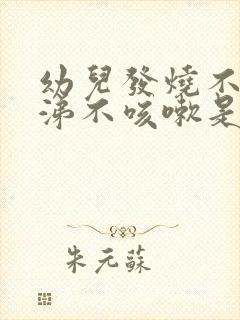 幼兒發燒不
涕不咳嗽是
朱元蘇